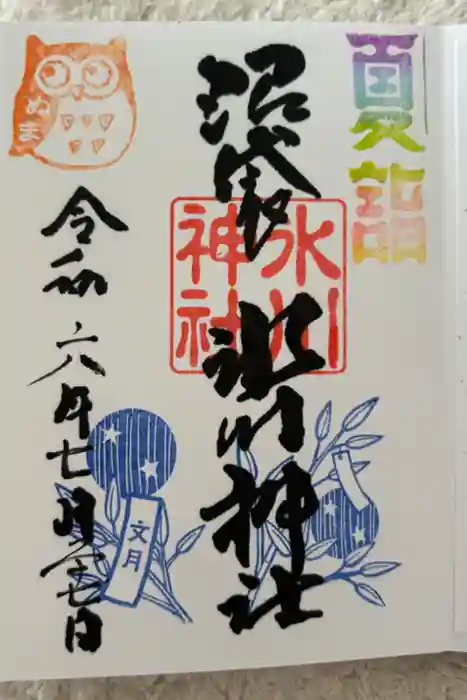 夏詣
沼袋 氷川神社
氷川
神社
ぬま
令和六年七月廿七日
文月